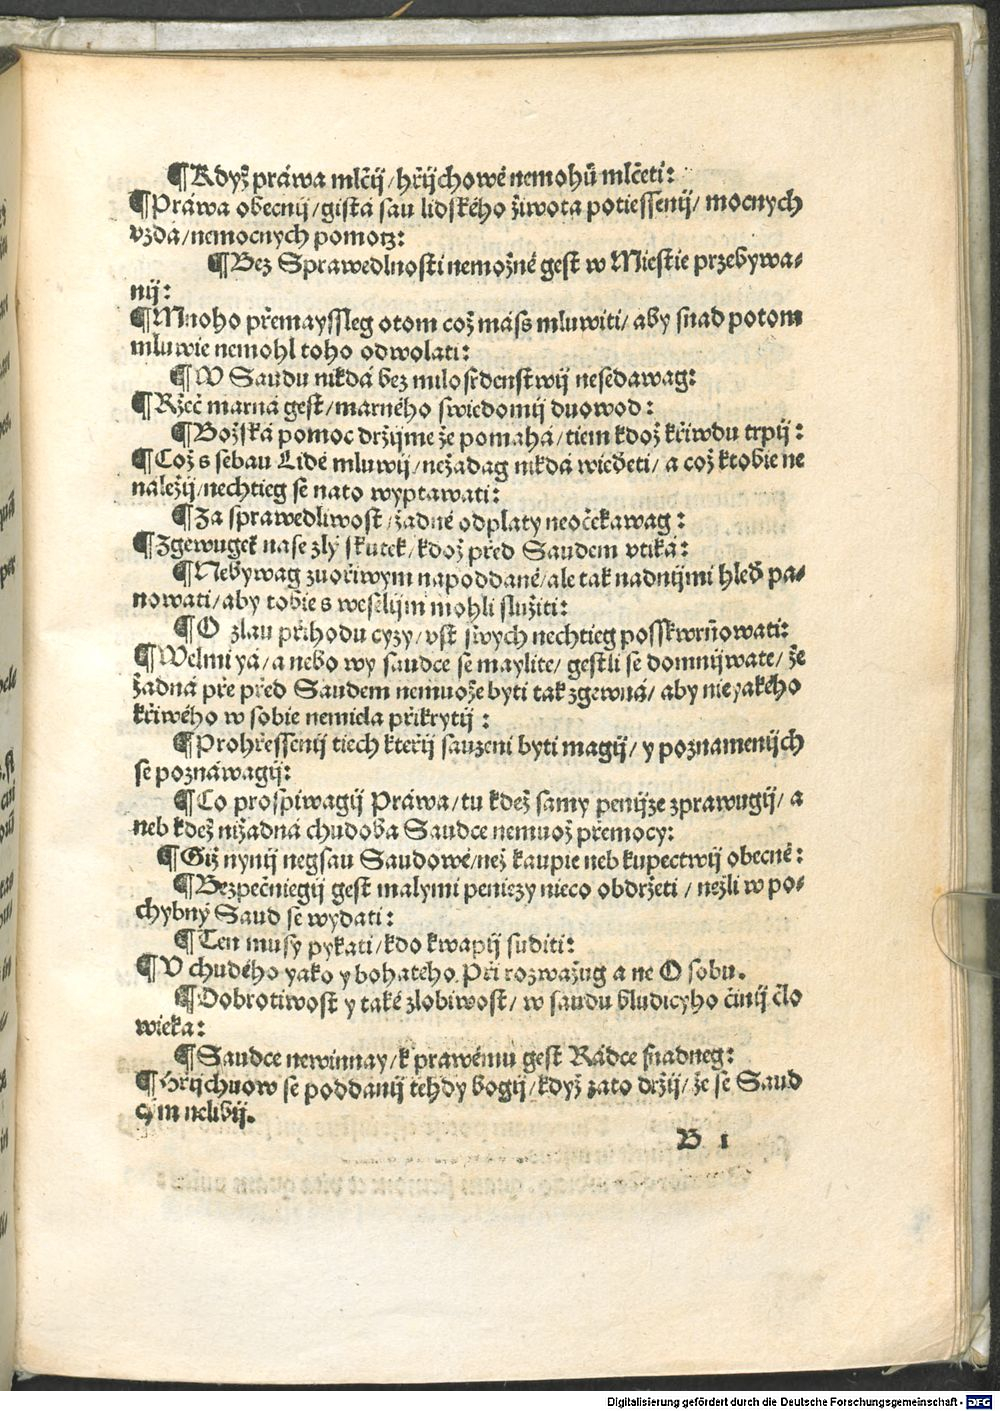 ¶Když práwa mlčij/hřijchowé nemohů mlčeti:
¶Práwa obecnij/gistá sau lidského žiwota potiessenij/ mocnych
vzda/nemocnych pomotz:
¶Bez Sprawedlnosti nemožné gest w Miestie przebywa-
nij:
¶Mnoho přemayssleg otom což máss mluwiti/ aby snad potom
mluwie nemohl toho odwolati:
¶W Saudu nikdá bez milosrdenstwij nesedawag:
¶Ržeč marná gest/marného swiedomij duowod:
¶Božská pomoc držijme že pomahá/tiem kdož křiwdu trpij:
¶Což s sebau Lidé mluwij/nežadag nikdá wieděti/ a což ktobie ne
náležij/nechtieg se nato wyptawati:
¶Za sprawedliwost/žadné odplaty neočekawag:
¶Zgewugeť nase zlý skutek/kdož před Saudem vtiká:
¶Nebywag zuořiwym napoddané/ale tak nadnijmi hleď pa-
nowati/aby tobie s weselijm mohli služiti:
¶O zlau přihodu cyzy/vst swych nechtieg posskwrňowati:
¶Welmi yá/a nebo wy saudce se maylite/gestli se domnijwate/že
žadná pře před Saudem nemuože byti tak zgewná/aby nieyakého
křiwého w sobie nemiela přikrytij:
¶Prohřessenij tiech kteřij sauzeni byti magij/ y poznamenijch
se poznáwagij:
¶Co prospiwagij Práwa/tu kdež samy penijze zprawugij/ a
neb kdež nižadná chudoba Saudce nemuož přemocy:
¶Giž nynij negsau Saudowé/než kaupie neb kupectwij obecné:
¶Bezpečniegij gest malymi peniezy nieco obdržeti/nežli w po-
chybný Saud se wydati:
¶Ten musy pykati/kdo kwapij suditi:
¶V chudého yako y bohatého. Při rozwažug a ne Osobu.
¶Dobrotiwost y také zlobiwost/ w saudu bludicyho činij člo
wieka:
¶Saudce newinnay/k prawému gest Rádce snadneg:
¶Hřijchuow se poddanij tehdy bogij/když zato držij/že se Saud
cým nelibij.
B 1
Digitalisierung gefördert durch die Deutsche Forschungsgemeinschaft - DFG